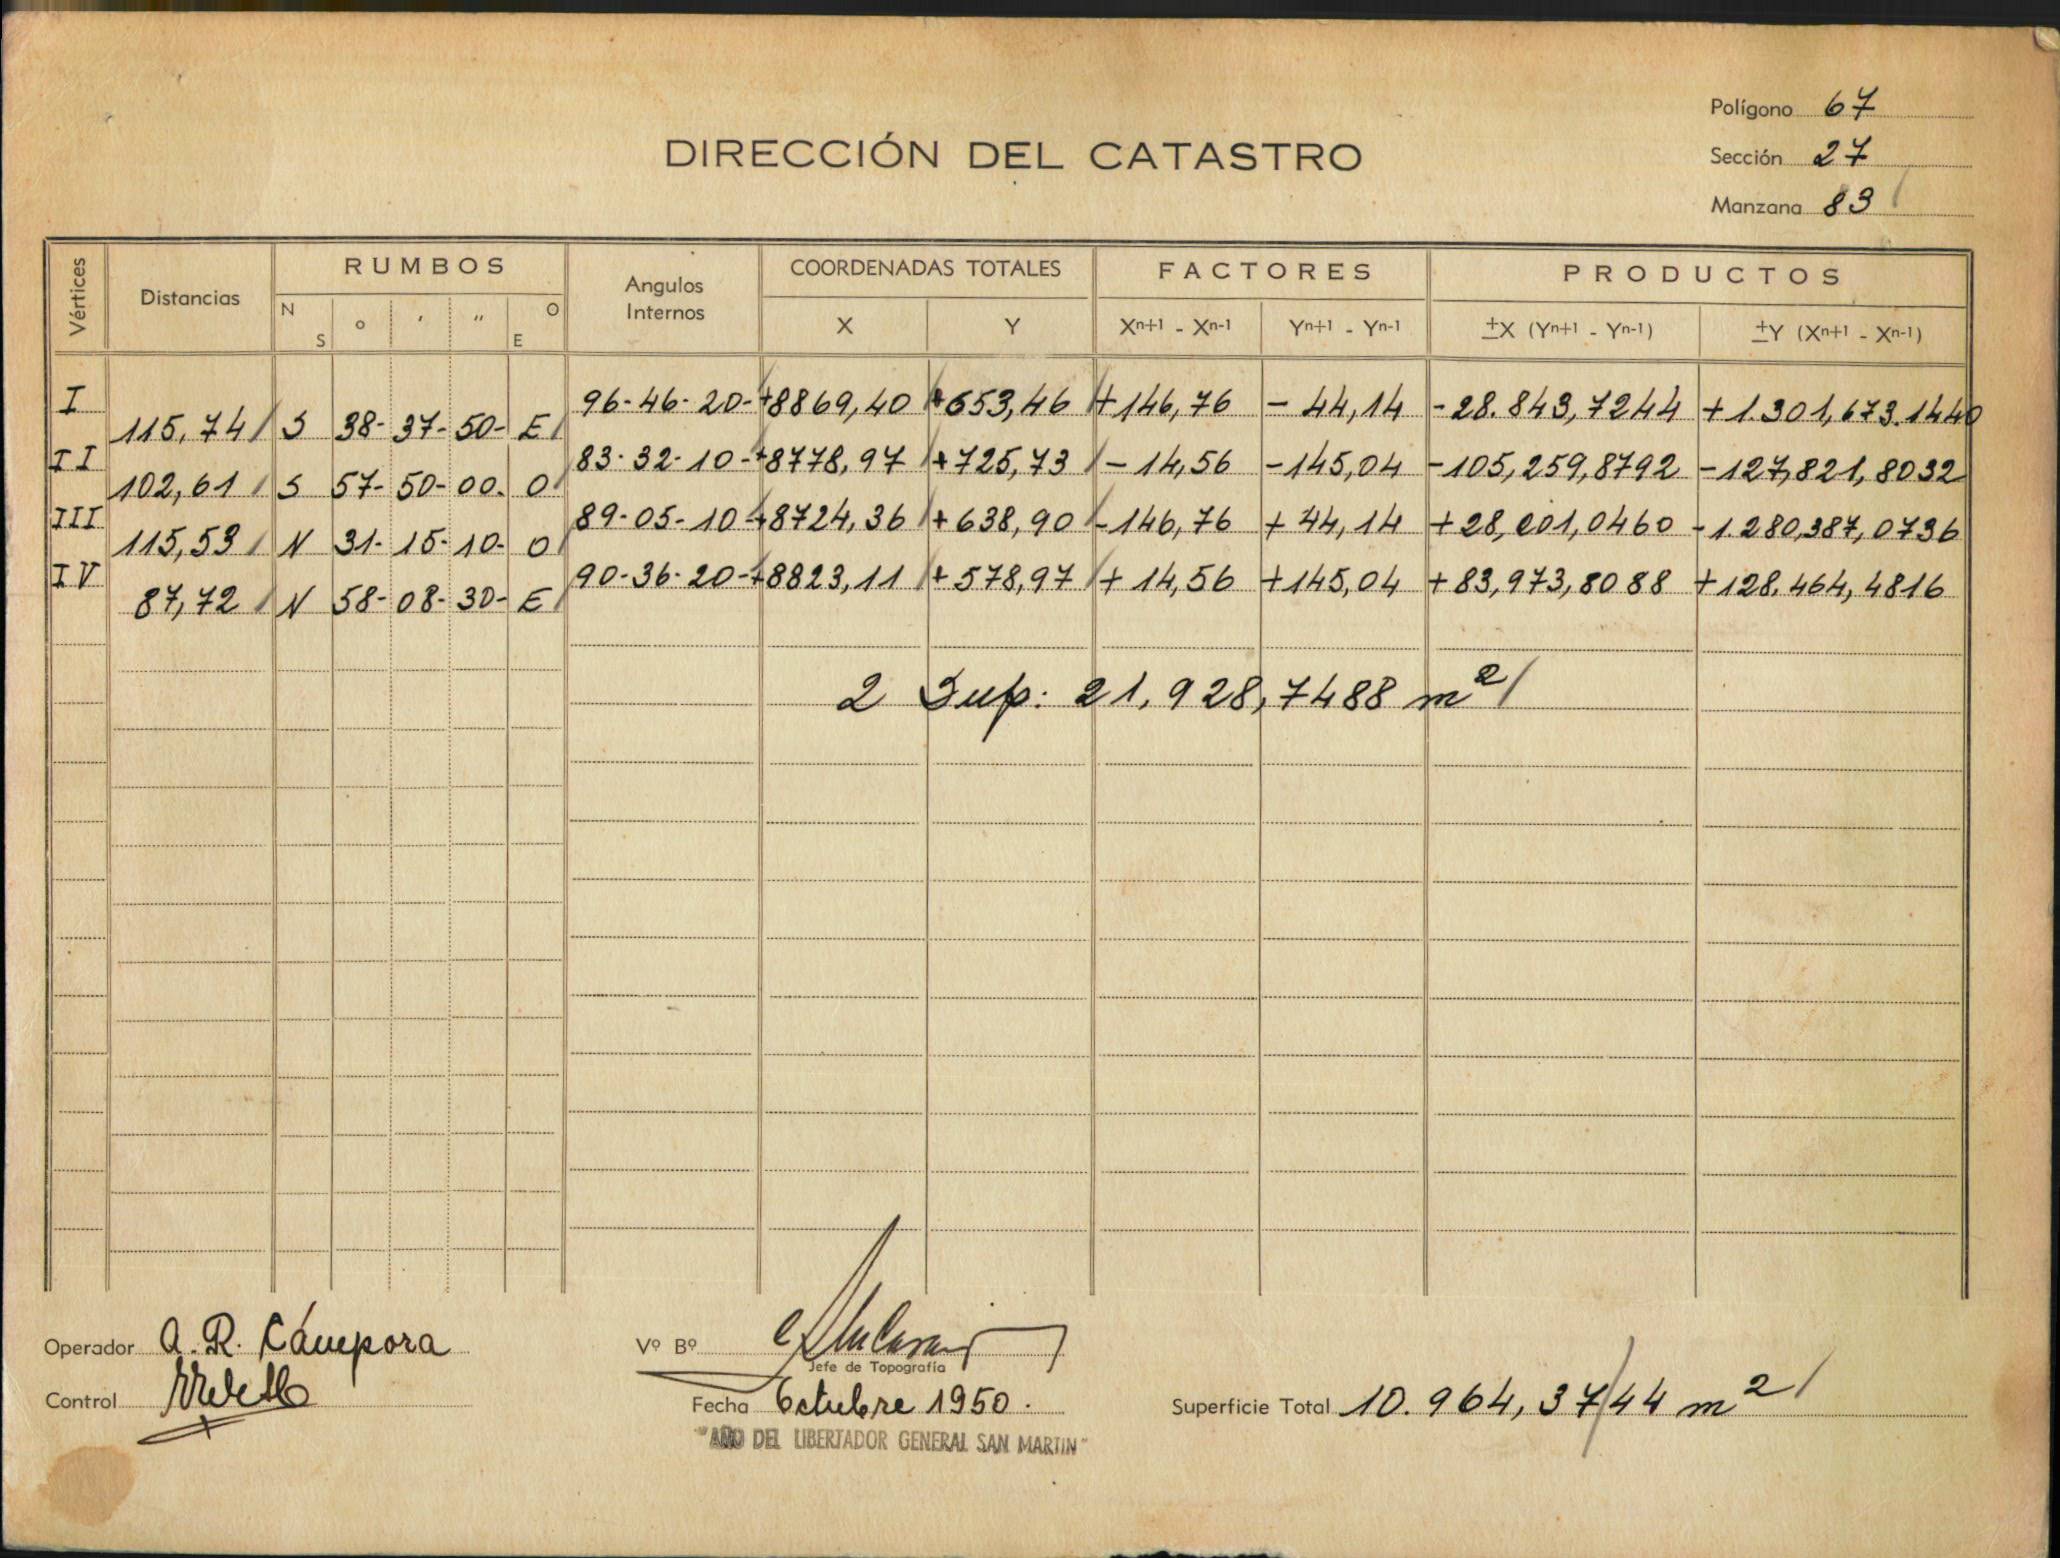 Polígono 67
DIRECCIÓN DEL CATASTRO
Sección 27
Manzana 83
Vértices Distancias RUMBOS Angulos Internos COORDENADAS TOTALES FACTORES PRODUCTOS
N S ° ' " O E X Y Xn+1 - Xn-1 Yn+1 - Yn-1 ±X (Yn+1 - Yn-1) ±Y (Xn+1 - Xn-1)
I 96-46-20- +8869,40 +653,46 +146,76 -44,14 -28.843,7244 +1.301,673.1440
115,74 S 38- 37- 50- E
II 83-32-10- +8778,97 +725,73 -14,56 -145,04 -105,259,8792 -127,821,8032
102,61 S 57- 50- 00- O
III 89-05-10- +8724,36 +638,90 -146,76 +44,14 +28,201,0460 -1.280,387,0736
115,53 N 31- 15- 10- O
IV 90-36-20- +8823,11 +578,97 +14,56 +145,04 +83,973,8088 +128.464,4816
87,72 N 58- 08- 30- E
2 Sup: 21.928,7488 m²
Operador A. R. Cámpora
Vº Bº
Jefe de Topografía
Control
Fecha Octubre 1950.
Superficie Total 10.964,3744 m²
"AÑO DEL LIBERTADOR GENERAL SAN MARTIN"